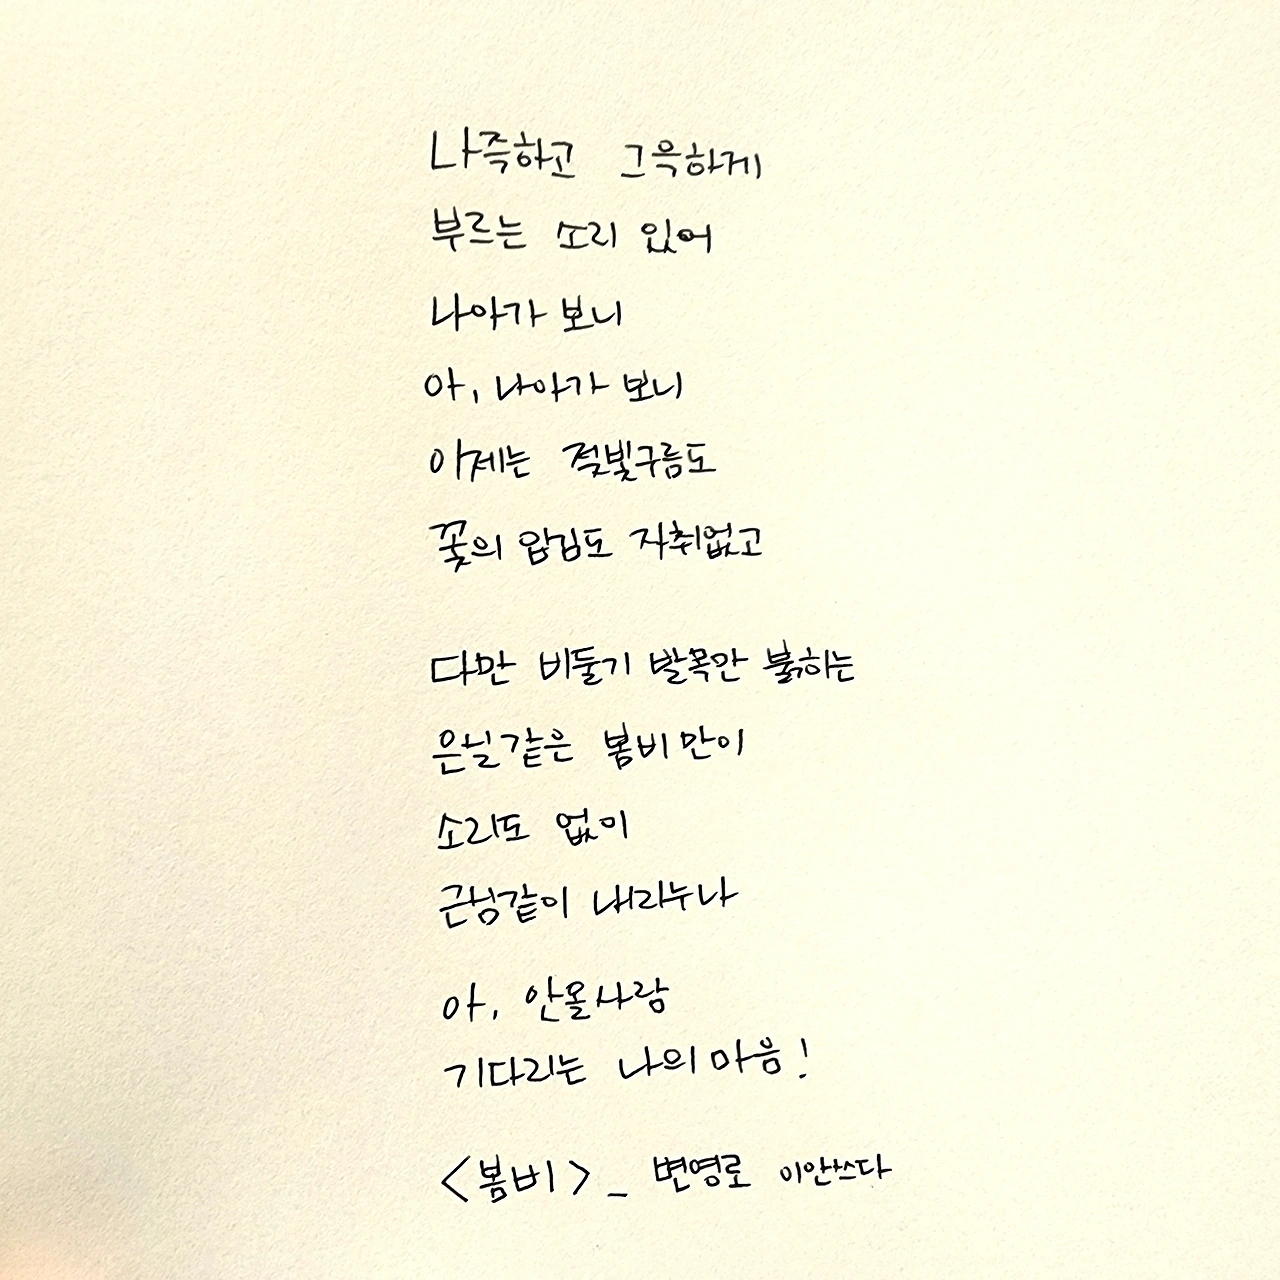 나즉하고 그윽하게
부르는 소리 있어
나아가 보니
아, 나아가 보니
이제는 젖빛구름도
꽃의 입김도 자취없고
다만 비둘기 발목만 붉히는
은실같은 봄비만이
소리도 없이
근심같이 내리누나
아, 안올사람
기다리는 나의 마음!
<봄비>_ 변영로 이안쓰다